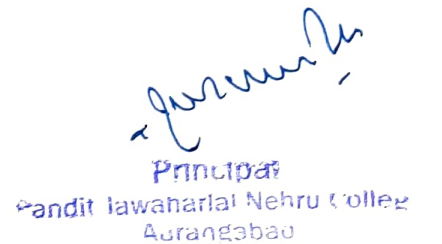 Principal
Pandit Jawaharlal Nehru College
Aurangabad